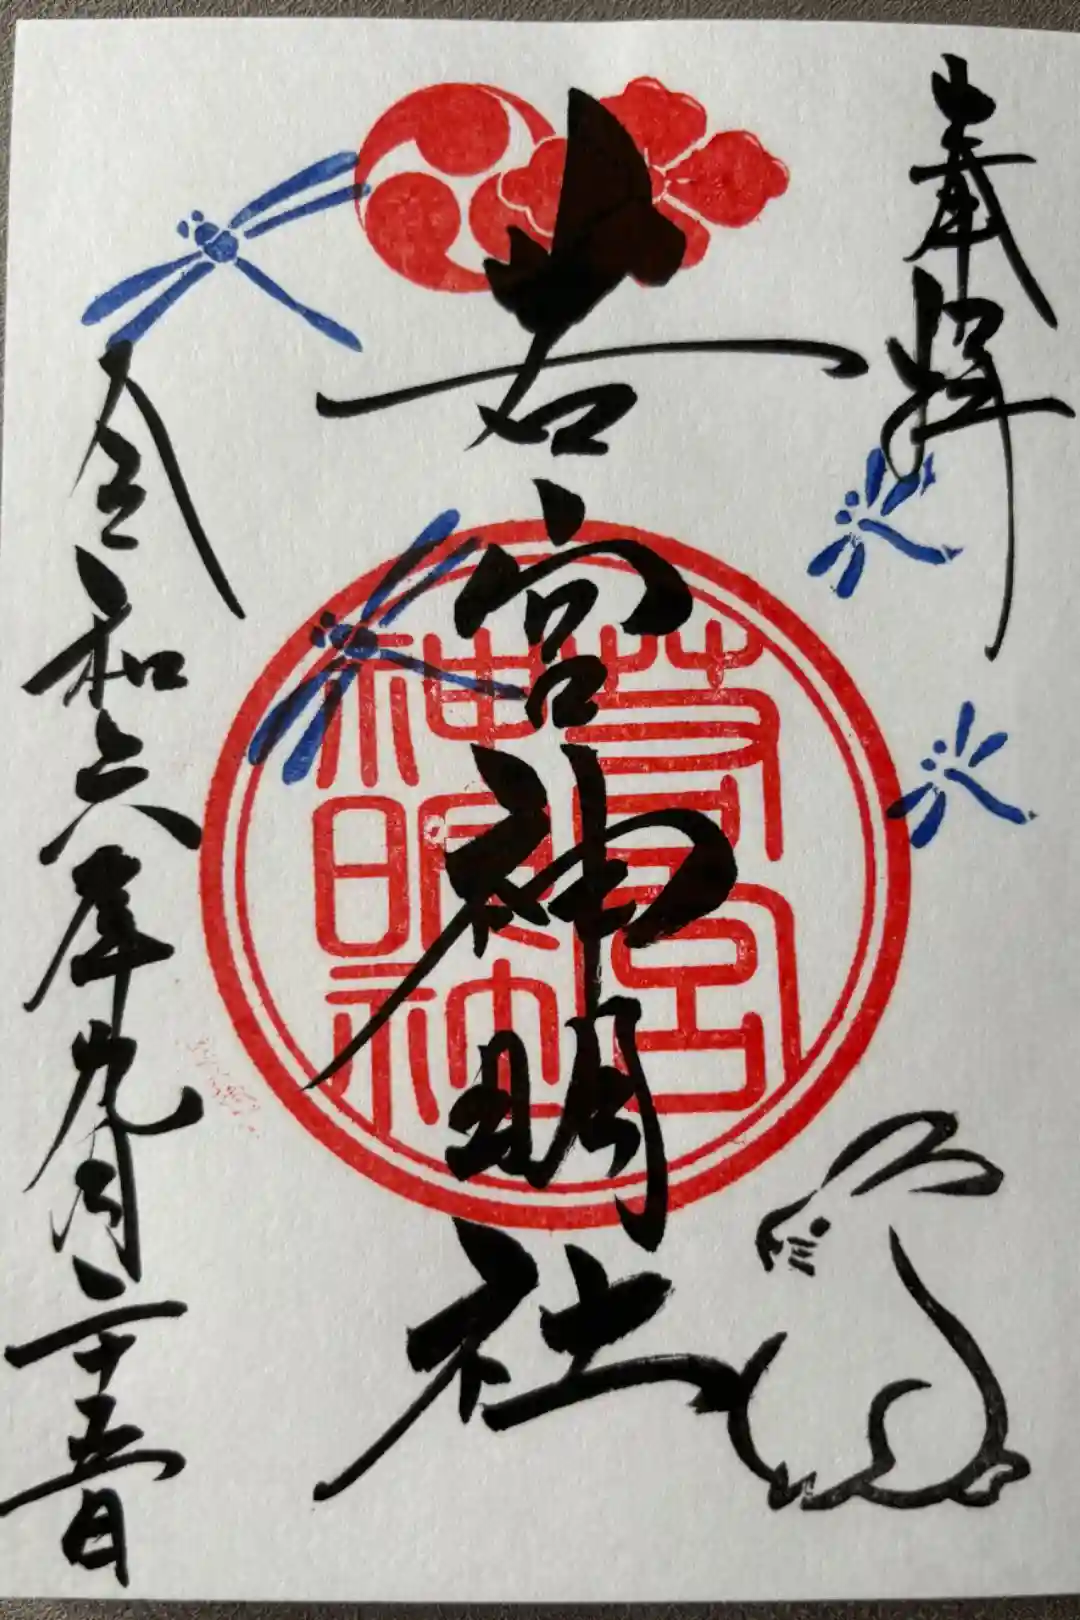 奉拝
若宮神明社
若宮
神明社
令和六年九月二十五日